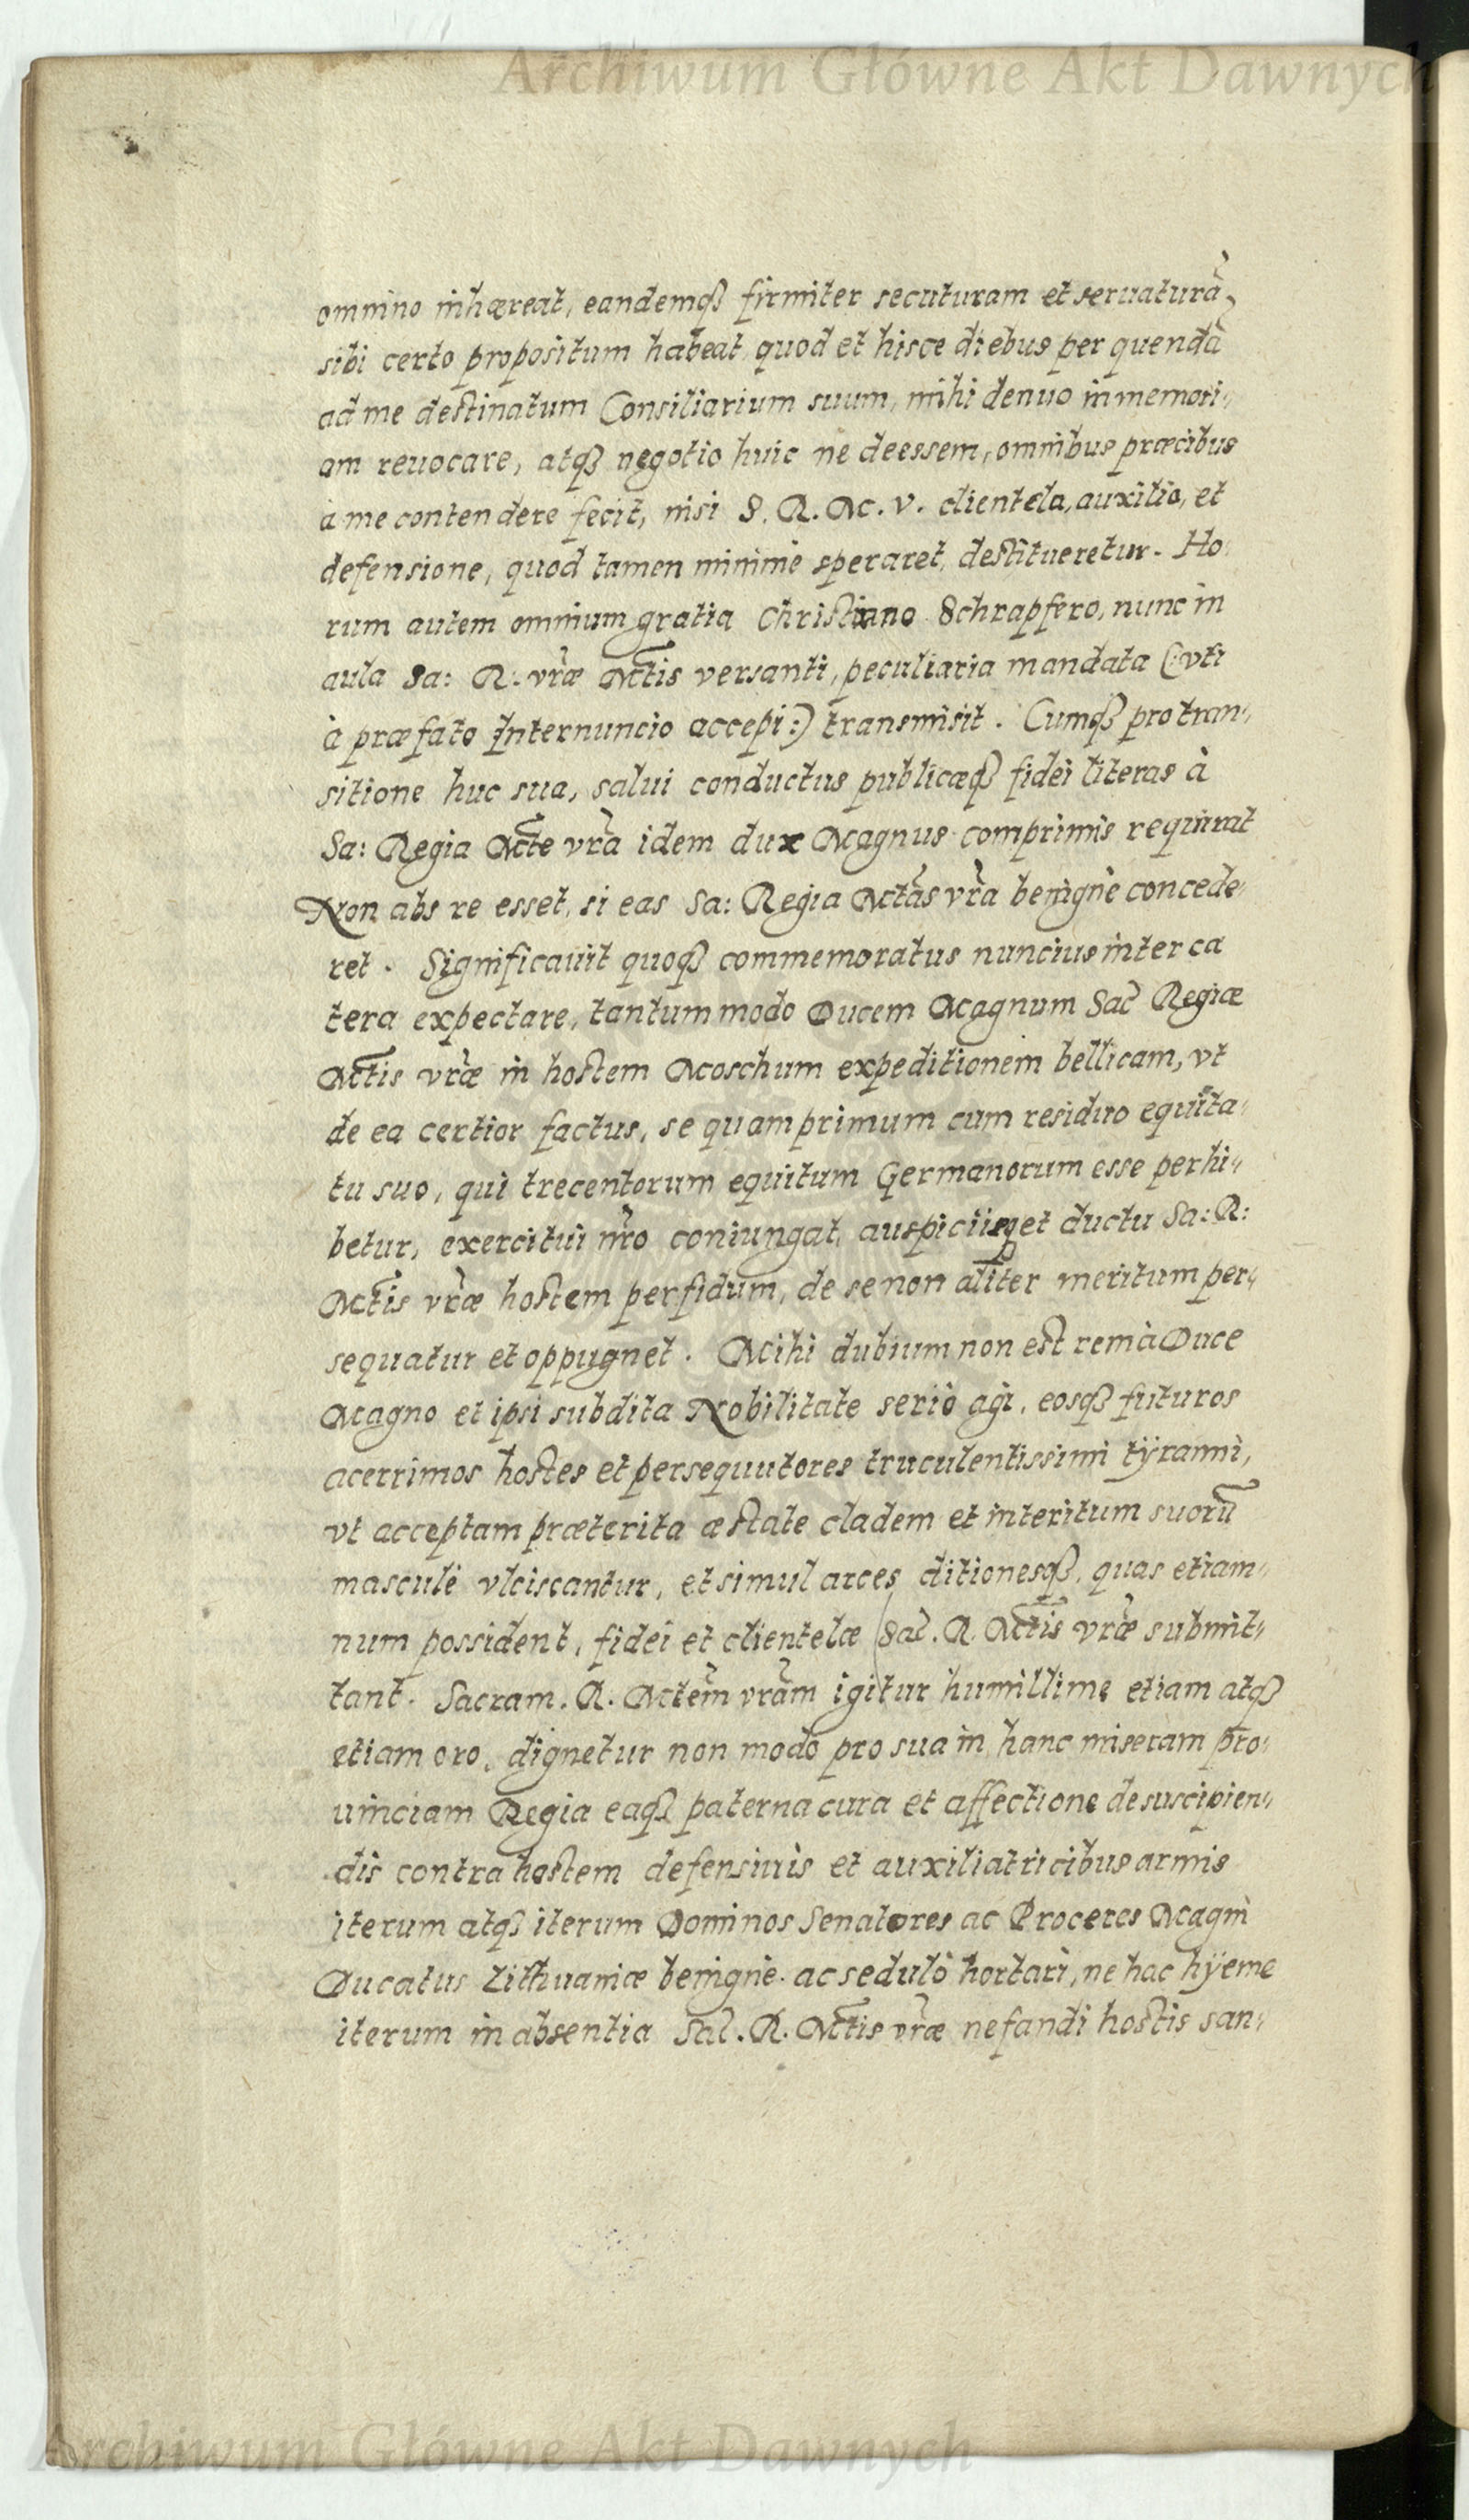 Archiwum Główne Akt Dawnych
omnino inhæreat, eandemqȝ firmiter secuturam et seruaturā,
sibi certo propositum habeat, quod et hisce diebus per quendā
ad me destinatum Consiliarium suum, mihi denuo in memori„
am reuocare, atqȝ negotio huic ne deessem, omnibus præcibus
à me contendere fecit, nisi S. R. M. V. clientela, auxilio, et
defensione, quod tamen minimè speraret, destitueretur. Ho„
rum autem omnium gratia Christianno Schrapfero, nunc in
aula Sa: R. vr̃æ Mt̃is versanti, peculiaria mandata (: vti
à præfato Internuncio accepi :) transmisit. Cumqȝ pro tran„
sitione huc sua, salui conductus publicæqȝ fidei literas à
Sa: Regia Mt̃e vr̃a idem dux Magnus comprimis requirat
Non abs re esset, si eas Sa: Regia Mt̃as vr̃a benignè concede„
ret. Significauit quoqȝ commemoratus nuncius inter cæ
tera expectare, tantummodo Ducem Magnum Sac̃ Regiæ
Mt̃is vr̃æ in hostem Moschum expeditionem bellicam, vt
de ea certior factus, se quam primum cum residuo equita„
tu suo, qui trecentorum equitum Germanorum esse perhi„
betur, exercitui nr̃o coniungat, auspicijsqȝ et ductu Sa: R:
Mt̃is vr̃æ hostem perfidum, de se non aliter meritum per„
sequatur et oppugnet. Mihi dubium non est rem à Duce
Magno et ipsi subdita Nobilitate seriò agi, eosqȝ futuros
acerrimos hostes et persequutores truculentissimi tÿranni,
vt acceptam præterita æstate cladem et interitum suorū
masculè vlciscantur, et simul arces, ditionesqȝ, quas etiam„
num possident, fidei et clientelæ Sac̃. R. Mt̃is vr̃æ submit„
tant. Sacram. R. Mt̃em vr̃am igitur humillime etiam atqȝ
etiam oro, dignetur non modo pro sua in hanc miseram pro„
uinciam Regia eaqȝ paterna cura et affectione de suscipien„
dis contra hostem defensiuis et auxiliatricibus armis
iterum atqȝ iterum Dominos Senatores ac Proceres Magni
Ducatus Lithuaniæ benignè ac sedulò hortari, ne hac hÿeme
iterum in absentia Sac̃. R. Mt̃is vr̃æ nefandi hostis san„
Archiwum Główne Akt Dawnych